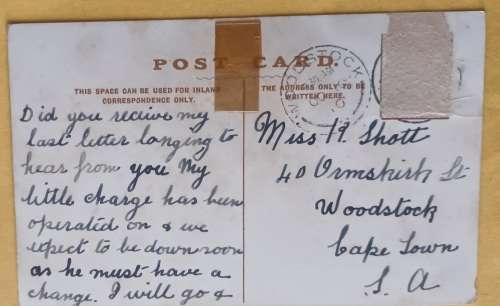 POST CARD.
WOODSTOCK
THIS SPACE CAN BE USED FOR INLAND
CORRESPONDENCE ONLY.
THE ADDRESS ONLY TO BE
WRITTEN HERE.
Did you receive my
last letter longing to
hear from you My
little charge has been
operated on & we
expect to be down soon
as he must have a
change. I will go &
Miss R. Shott
40 Ormskirk St
Woodstock
Cape Town
S. A